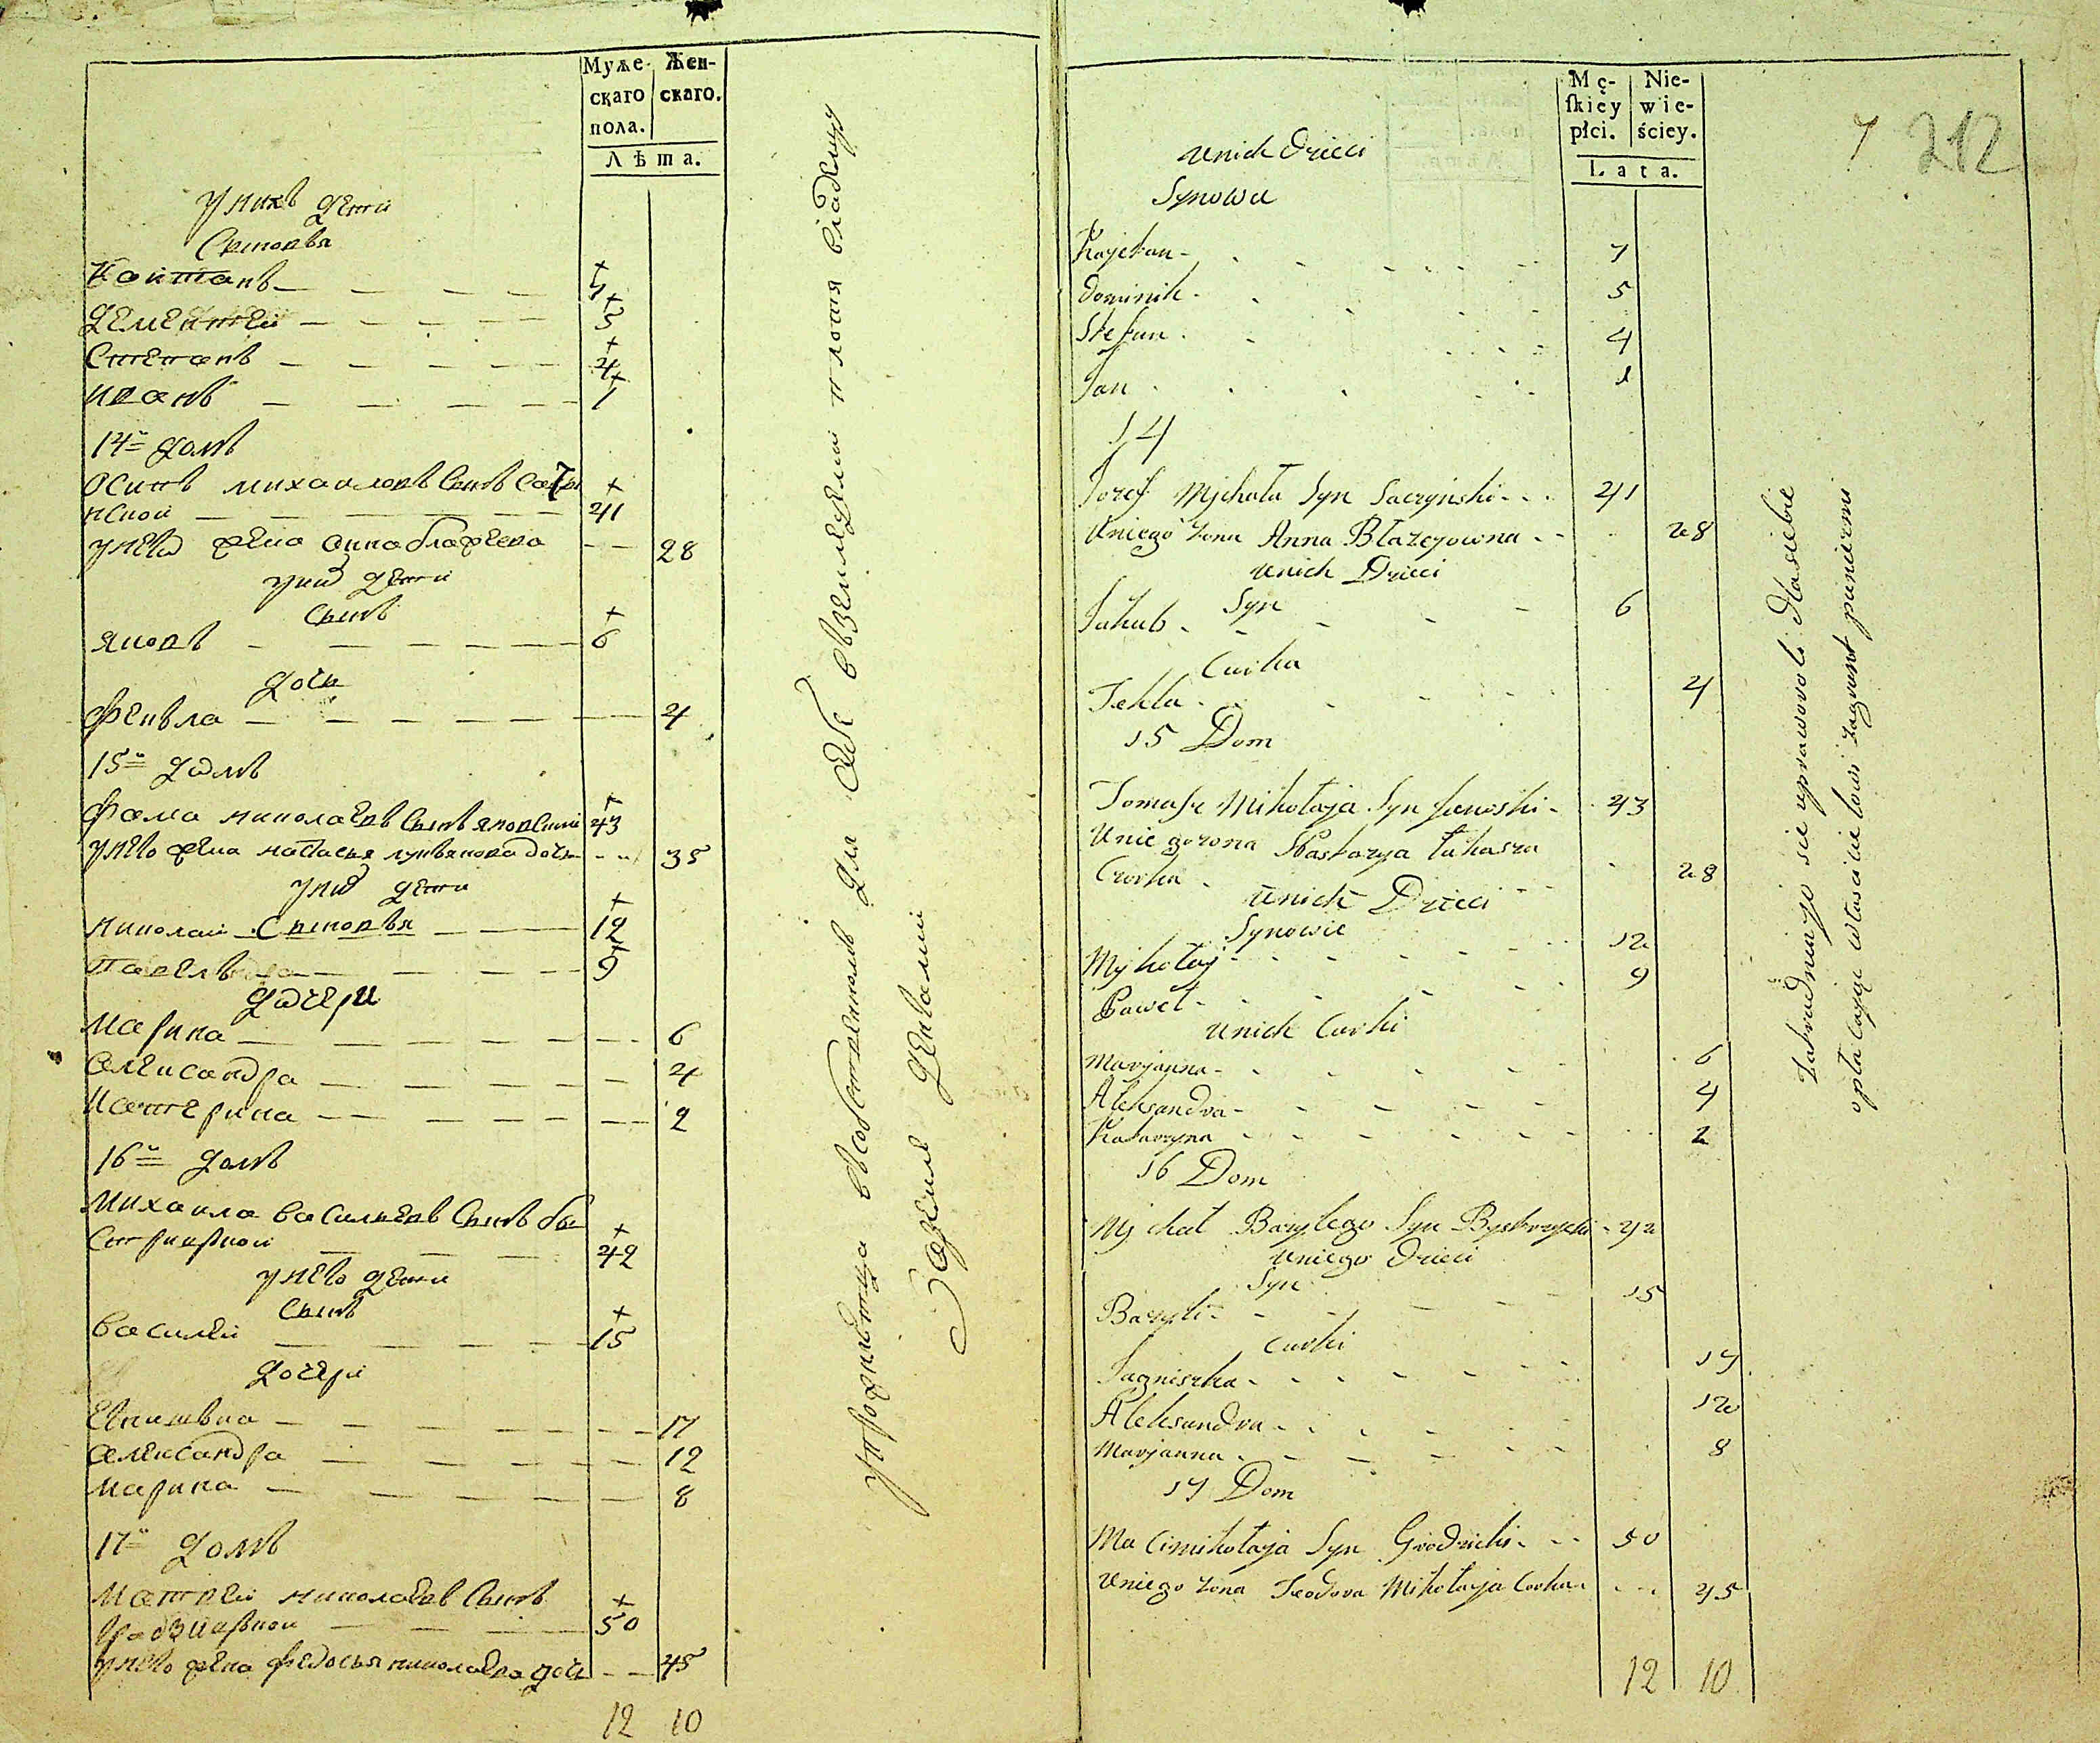 Муже-
скаго
пола.
Жен-
скаго.
Лѣта.
у нихъ дети
Сыновья
Коитанъ 7
Дементеи 5
Степанъ 4
иванъ 1
14й домъ
Осипъ михаиловъ Сынъ
41
у нево жена анна блажеева 28
у них дети
Сынъ
яковъ 6
дочь
Фекъла 4
15й домъ
фома николаевъ Сынъ яновский 43
у нево жена настасья лукьянова дочь 35
у них дети
Сыновья
николай 12
павелъ 9
дочери
марина 6
александра 4
катерина 2
16й домъ
михаила васильевъ Сынъ бы
стрицкой 42
у нево дети
Сынъ
василей 15
дочери
17
александра 12
марина 8
17й домъ
матвей николаевъ Сынъ
50
у нево жена федосья николаева дочь 45
12 10
землями
Mę-
ſkiey
płci.
Nie-
wie-
ściey.
Lata.
7 212
unich Dzieci
Synowie
Kajetan 7
Dominik 5
Stefan 4
Jan 1
14
Jozef Mjchała Syn Saczynski 41
Uniego żona Anna Błażejowna 28
unich Dzieci
Syn
Jakub 6
Curka
Tekla 4
15 Dom
Tomasz Mikołaja Syn Janoski 43
Uniego żona Nastazya Łukasza
Curka 28
unich Dzieci
Synowie
Mjkołaj 12
Paweł 9
unich Curki
Marjanna 6
Aleksandra 4
Katarzyna 2
16 Dom
Mjchał Bazylego Syn Bystrzycki 42
uniego Dzieci
Syn
Bazyli 15
Curki
Jagniszka 17
Aleksandra 12
Marjanna 8
17 Dom
Maci mikołaja Syn Grodzicki 50
Uniego żona Teodora Mikołaja Corka 45
12 10
Zatrudniają sie uprawą roli dla siebie
opłacając właścicielowi